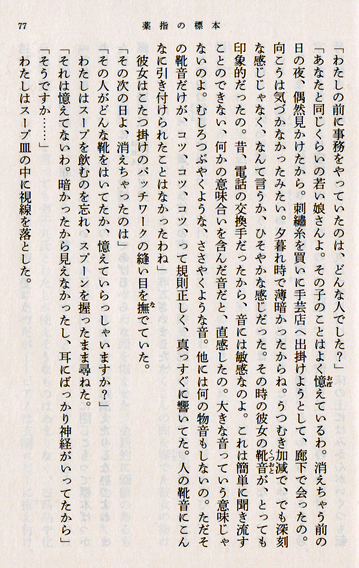 77　薬指の標本
「わたしの前に事務をやっていたのは、どんな人でした？」
「あなたと同じくらいの若い娘さんよ。その子のことはよく憶えているわ。消えちゃう前の
日の夜、偶然見かけたから。刺繡糸を買いに手芸店へ出掛けようとして、廊下で会ったの。
向こうは気づかなかったみたい。夕暮れ時で薄暗かったからね。うつむき加減で、でも深刻
な感じじゃなく、なんて言うか、ひそやかな感じだった。その時の彼女の靴音が、とっても
印象的だったの。昔、電話の交換手だったから、音には敏感なのよ。これは簡単に聞き流す
ことのできない、何かの意味合いを含んだ音だと、直感したの。大きな音っていう意味じゃ
ないのよ。むしろつぶやくような、ささやくような音。他には何の物音もしないの。ただそ
の靴音だけが、コツ、コツ、コツ、って規則正しく、真っすぐに響いてた。人の靴音にこん
なに引き付けられたことはなかったわね」
彼女はこたつ掛けのパッチワークの縫い目を撫でていた。
「その次の日よ、消えちゃったのは」
「その人がどんな靴をはいてたか、憶えていらっしゃいますか？」
わたしはスープを飲むのを忘れ、スプーンを握ったまま尋ねた。
「それは憶えてないわ。暗かったから見えなかったし、耳にばっかり神経がいってたから」
「そうですか……」
わたしはスープ皿の中に視線を落とした。